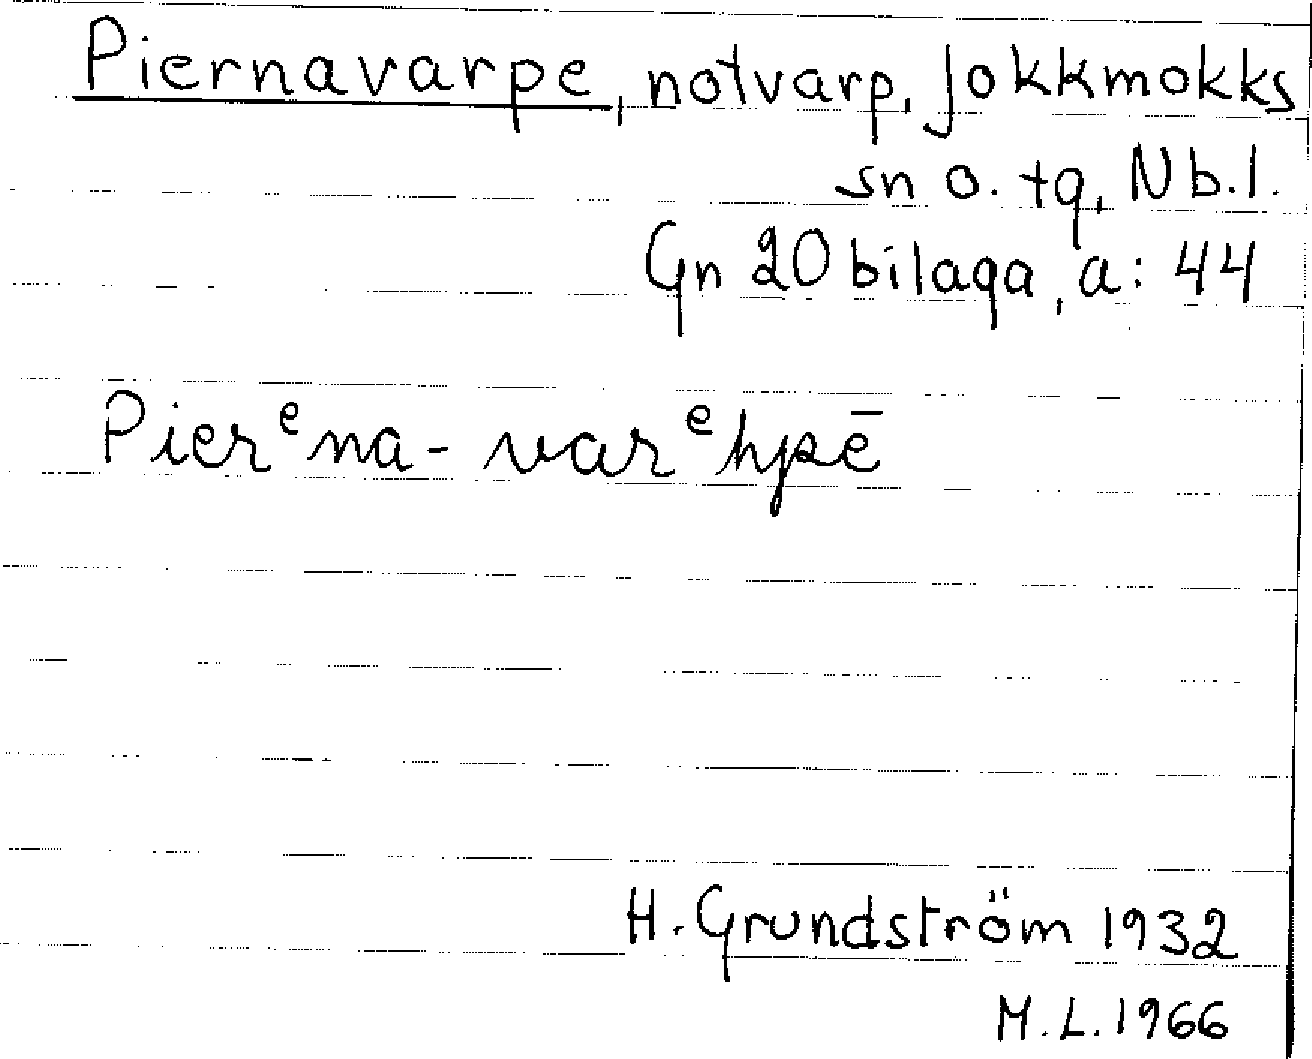 Piernavarpe, notvarp. Jokkmokks
sn o. tg, Nb.l.
Gn 20 bilaga, a: 44
Pierᵉna-varᵉhpē
H. Grundström 1932
M.L. 1966